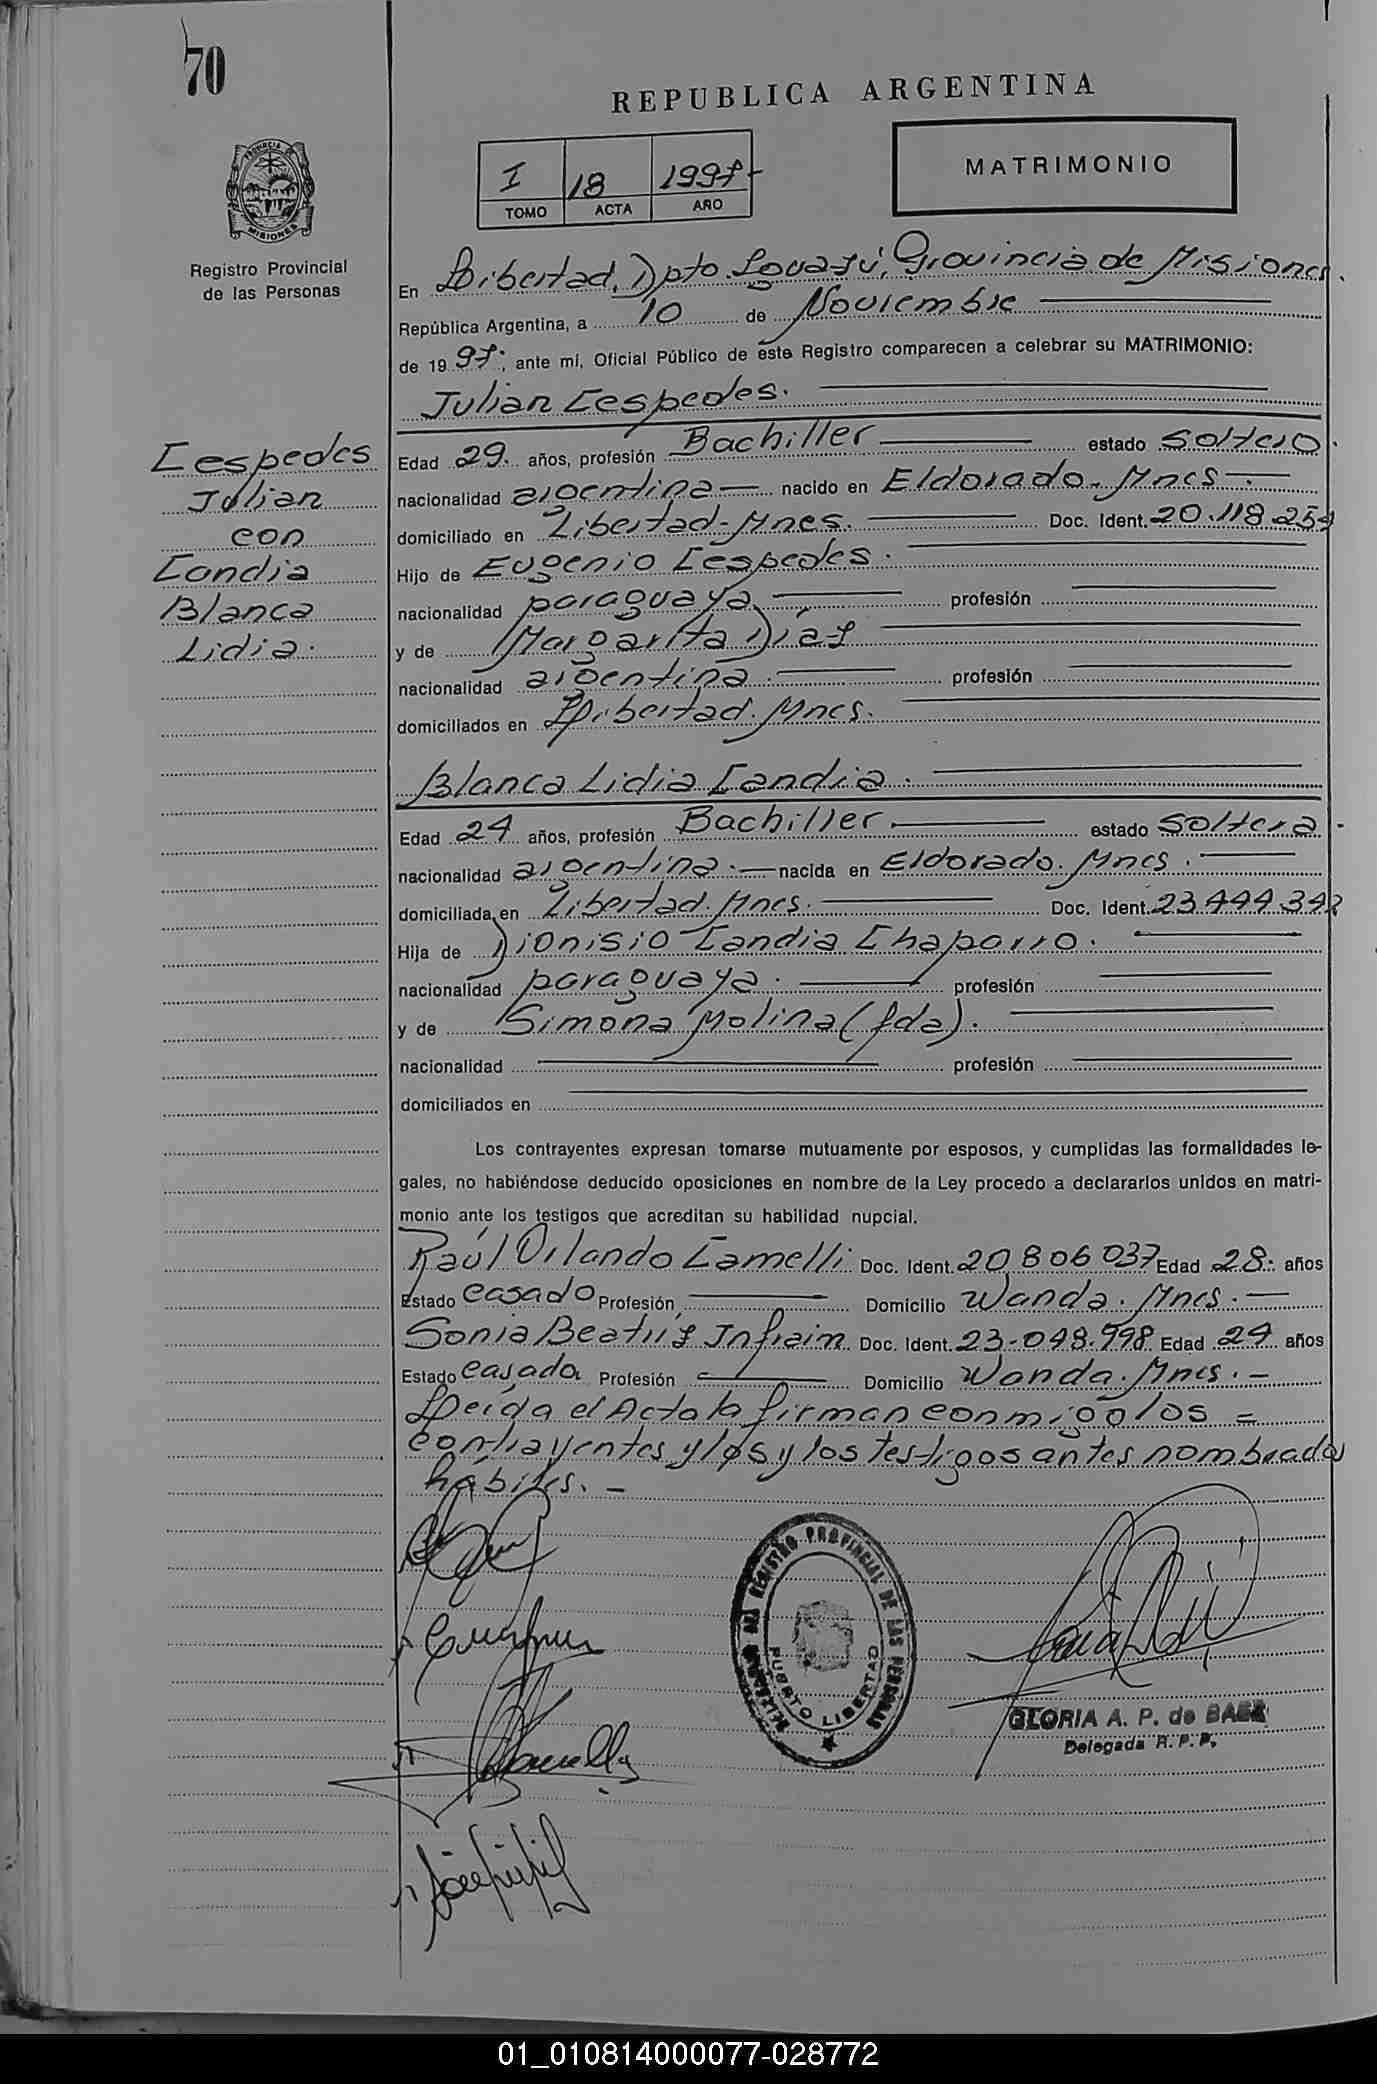 70
REPUBLICA ARGENTINA
I 18 1997-
TOMO ACTA AÑO
MATRIMONIO
PROVINCIA DE
MISIONES
Registro Provincial
de las Personas
En Libertad, Dpto. Iguazú, Provincia de Misiones.
República Argentina, a 10 de Noviembre
de 19 97; ante mí, Oficial Público de este Registro comparecen a celebrar su MATRIMONIO:
Julian Cespedes.
Cespedes
Julian
con
Candia
Blanca
Lidia.
Edad 29. años, profesión Bachiller estado soltero.
nacionalidad argentina nacido en Eldorado. Mnes.
domiciliado en Libertad-Mnes. Doc. Ident. 20.118.254
Hijo de Eugenio Cespedes.
nacionalidad paraguaya profesión
y de Margarita Díaz
nacionalidad argentina. profesión
domiciliados en Libertad. Mnes.
Blanca Lidia Candia.
Edad 24 años, profesión Bachiller estado soltera.
nacionalidad argentina. nacida en Eldorado. Mnes.
domiciliada en Libertad. Mnes. Doc. Ident. 23.444.342
Hija de Dionisio Candia Chaparro.
nacionalidad paraguaya. profesión
y de Simona Molina (fda).
nacionalidad profesión
domiciliados en
Los contrayentes expresan tomarse mutuamente por esposos, y cumplidas las formalidades le-
gales, no habiéndose deducido oposiciones en nombre de la Ley procedo a declararlos unidos en matri-
monio ante los testigos que acreditan su habilidad nupcial.
Raúl Orlando Camelli Doc. Ident. 20 806 037 Edad 28. años
Estado casado Profesión Domicilio Wanda. Mnes.
Sonia Beatríz Infrain Doc. Ident. 23-048.998 Edad 24 años
Estado casada Profesión Domicilio Wanda. Mnes. -
Leída el Acta la firman conmigo los =
contrayentes y los y los testigos antes nombrados
hábiles. -
DELEGACION DEL REGISTRO PROVINCIAL DE LAS PERSONAS
PUERTO LIBERTAD
GLORIA A. P. de BAEZ
Delegada R.P.P.
01_010814000077-028772